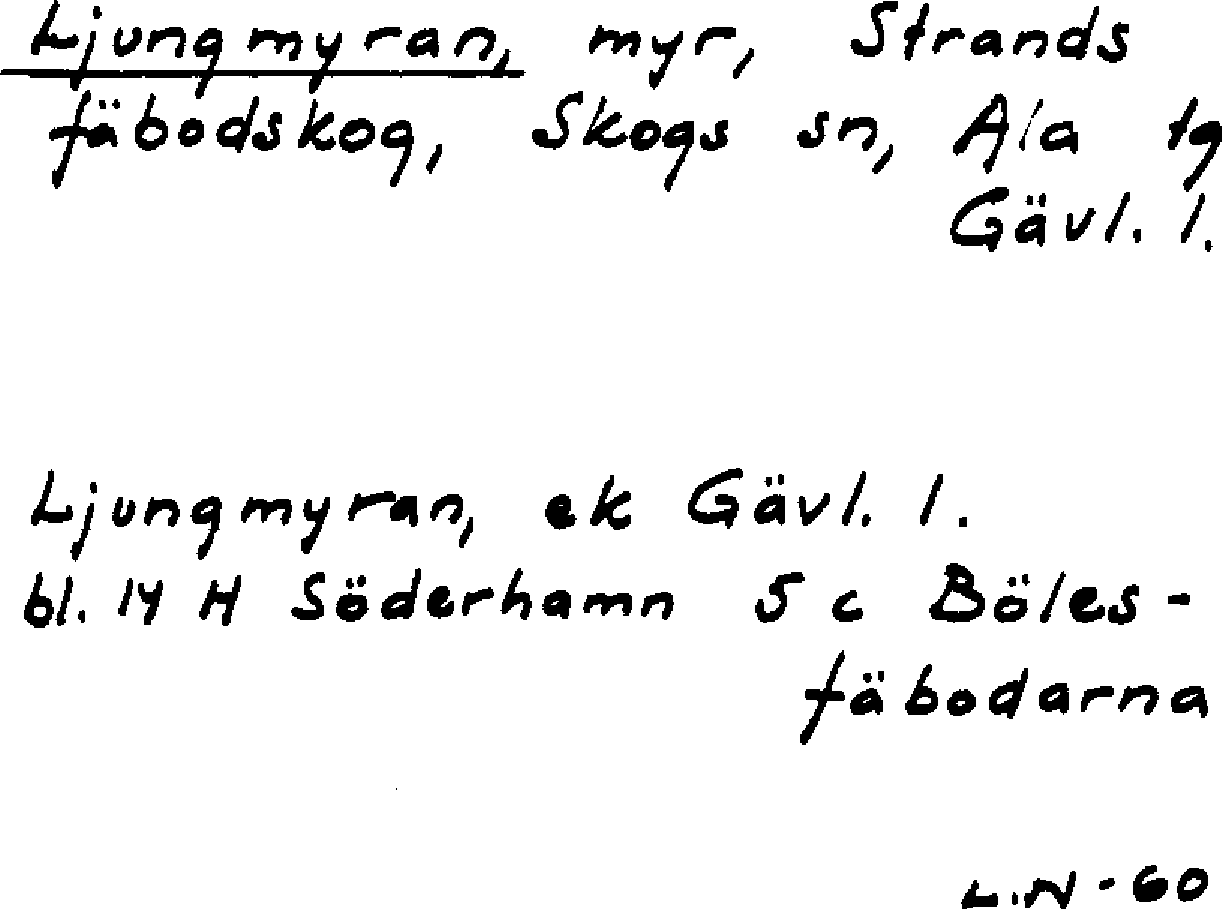 Ljungmyran, myr, Strands
fäbodskog, Skogs sn, Ala tg
Gävl. l.
Ljungmyran, ek Gävl. l.
bl. 14 H Söderhamn 5 c Böles-
fäbodarna
L.N-60